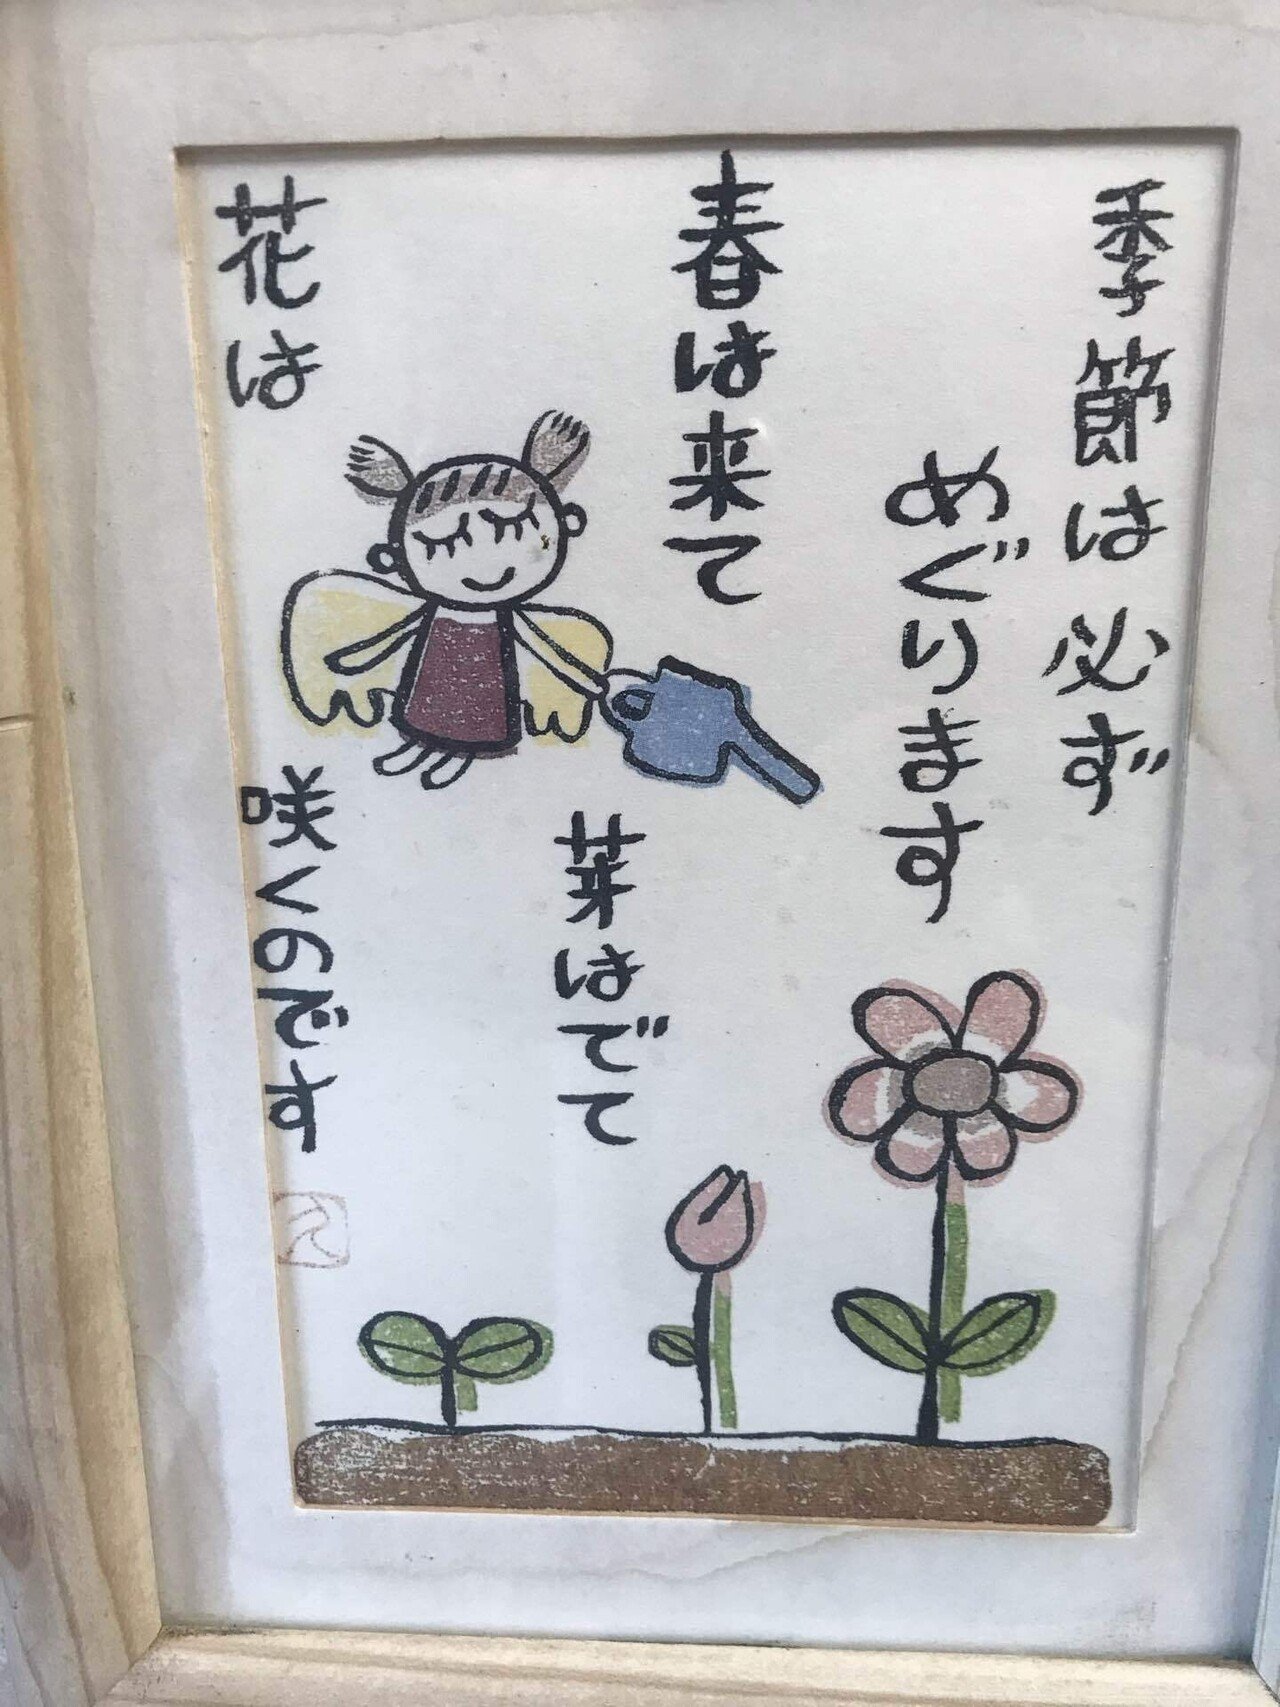 季節は必ず
めぐります
春は来て
芽はでて
花は
咲くのです